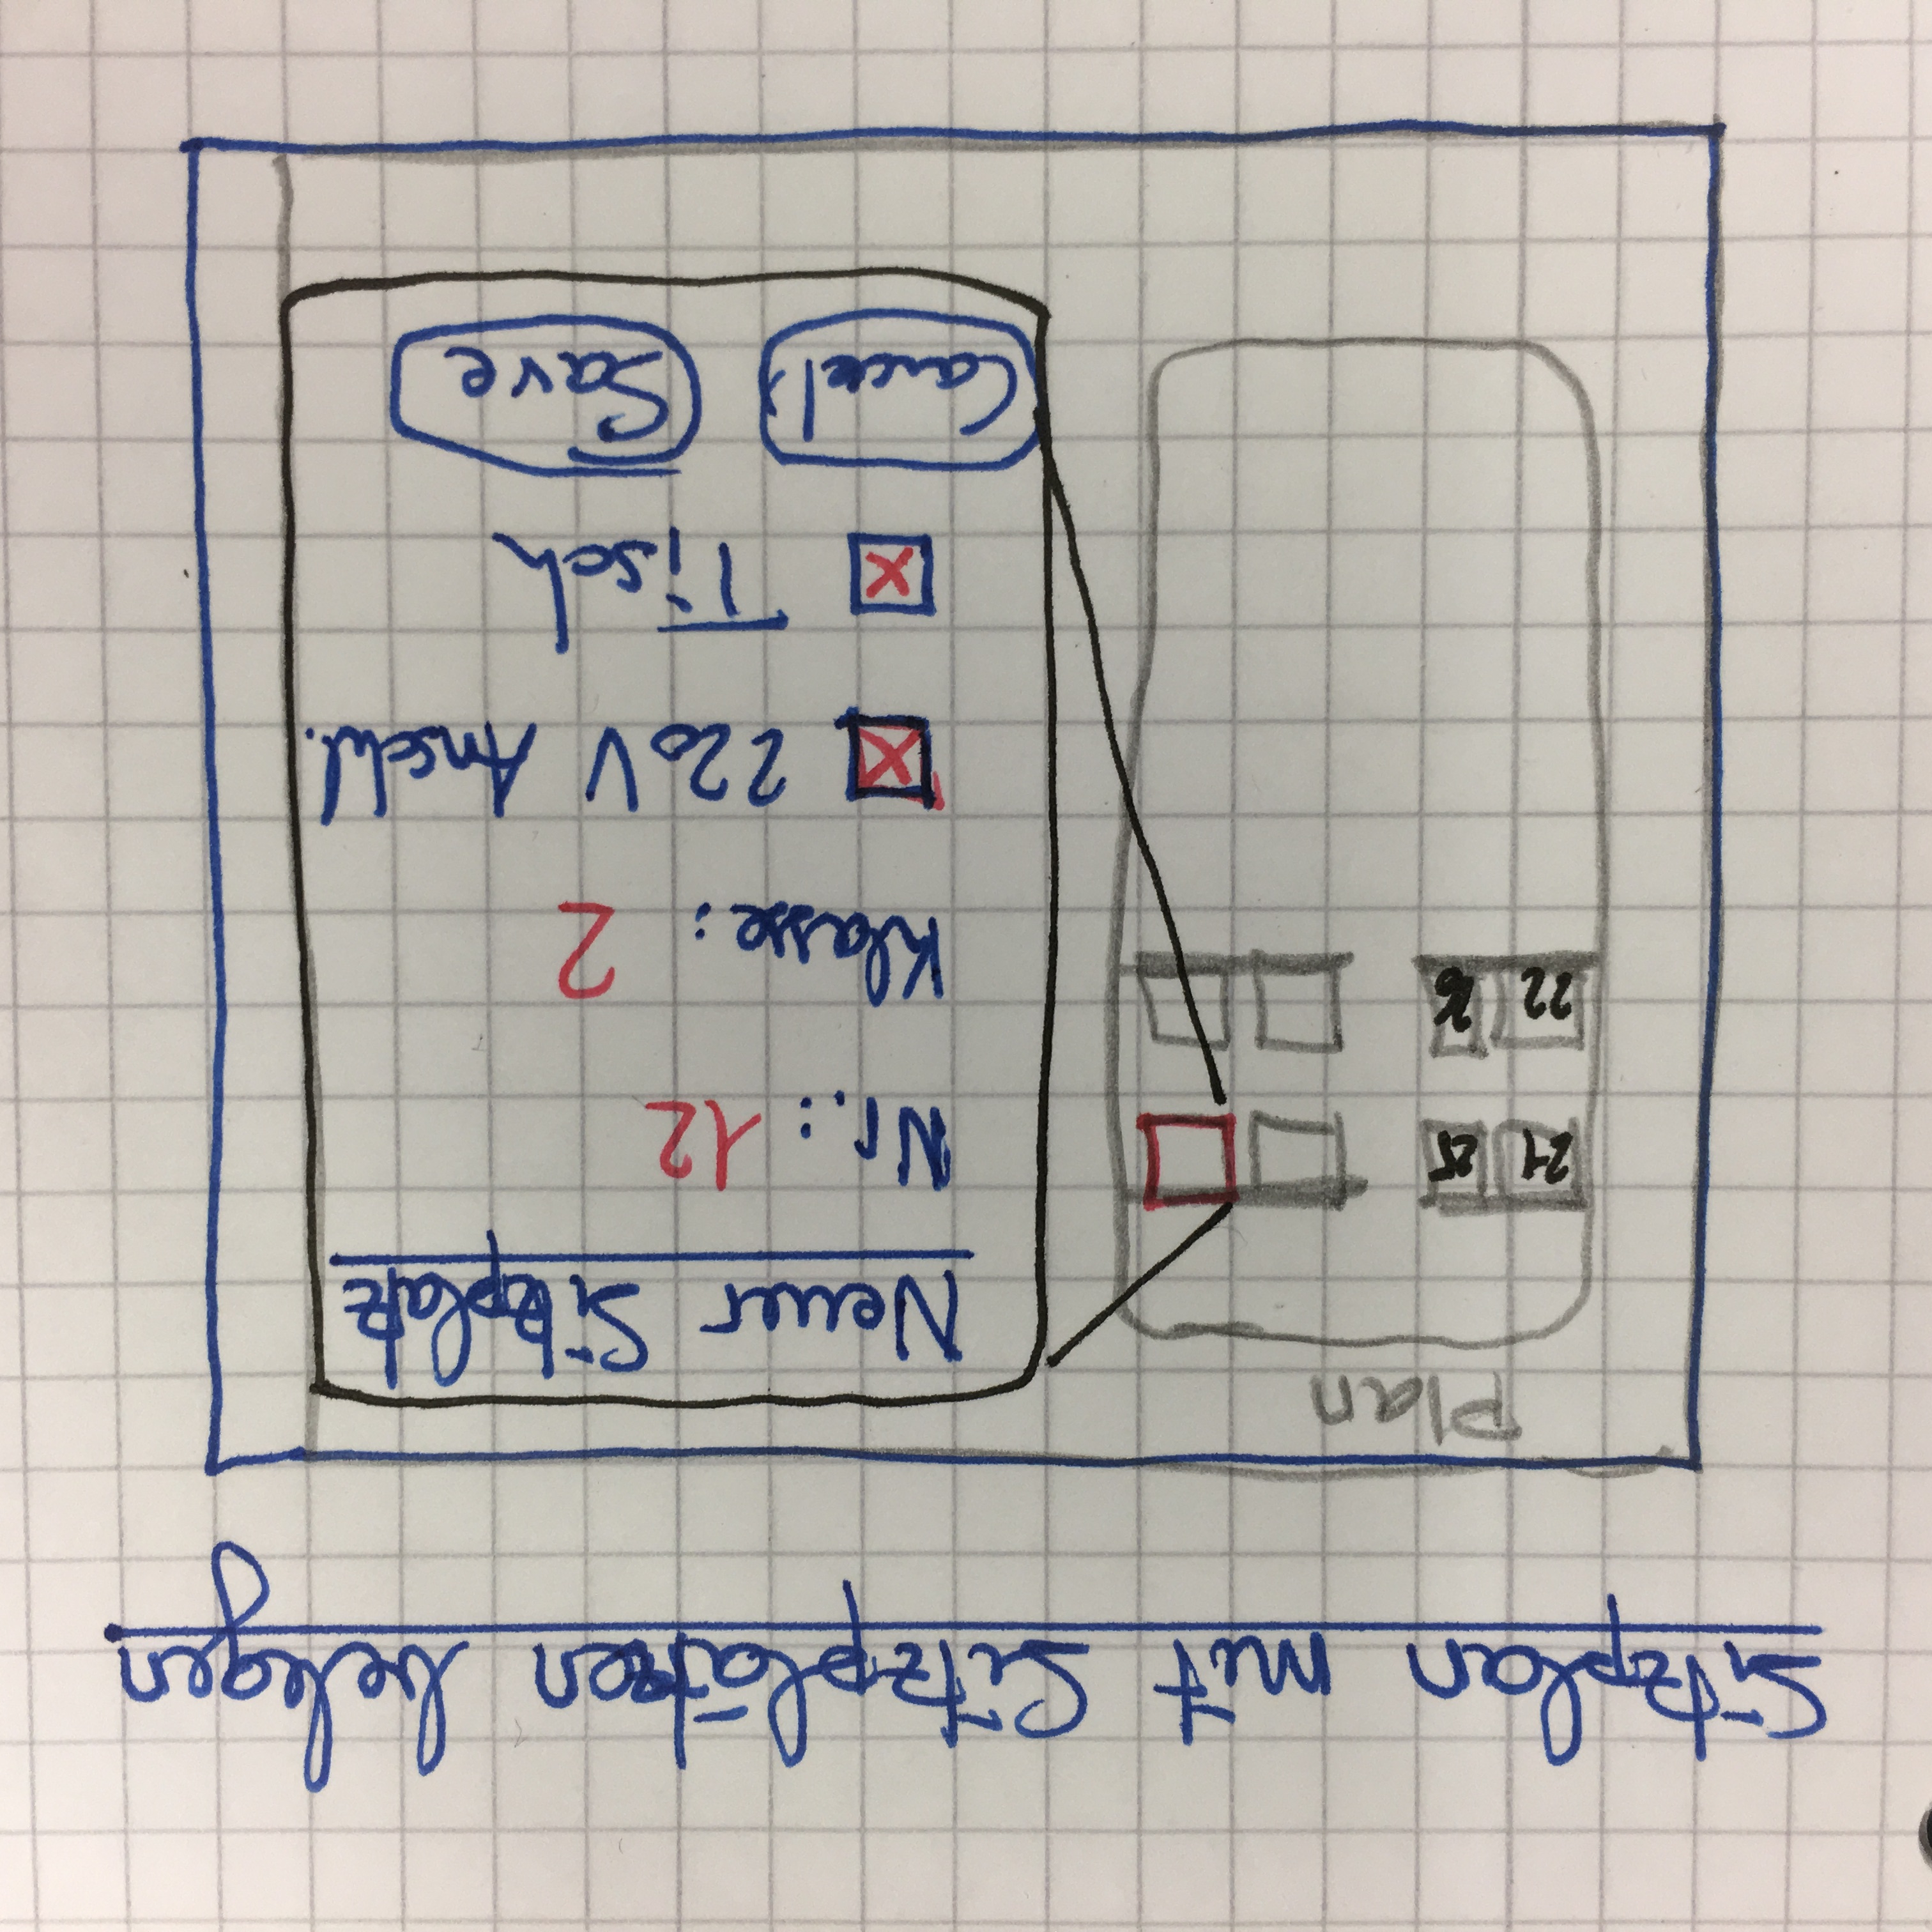 Sitzplan mit Sitzplätzen belegen
Plan
21 25
22 26
Neuer Sitzplatz
Nr.: 12
Klasse: 2
220V Anschl.
Tisch
Cancel
Save